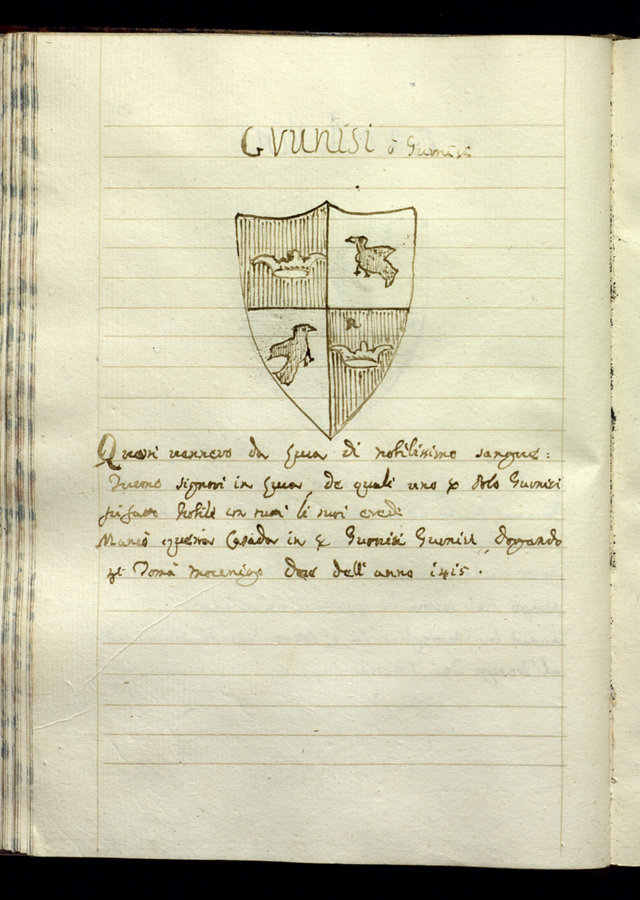 GVUNISI ò Gunisi
Questi vennero da di nobilissimo sangue:
furono signori in de quali uno Polo Guonisi
fu fatto Nobile con tutti li suoi eredi
Mancò questa Casada in Guonisi Gunisi, Dogando
Tomà Mocenigo Doxe dell'anno 1415.
R